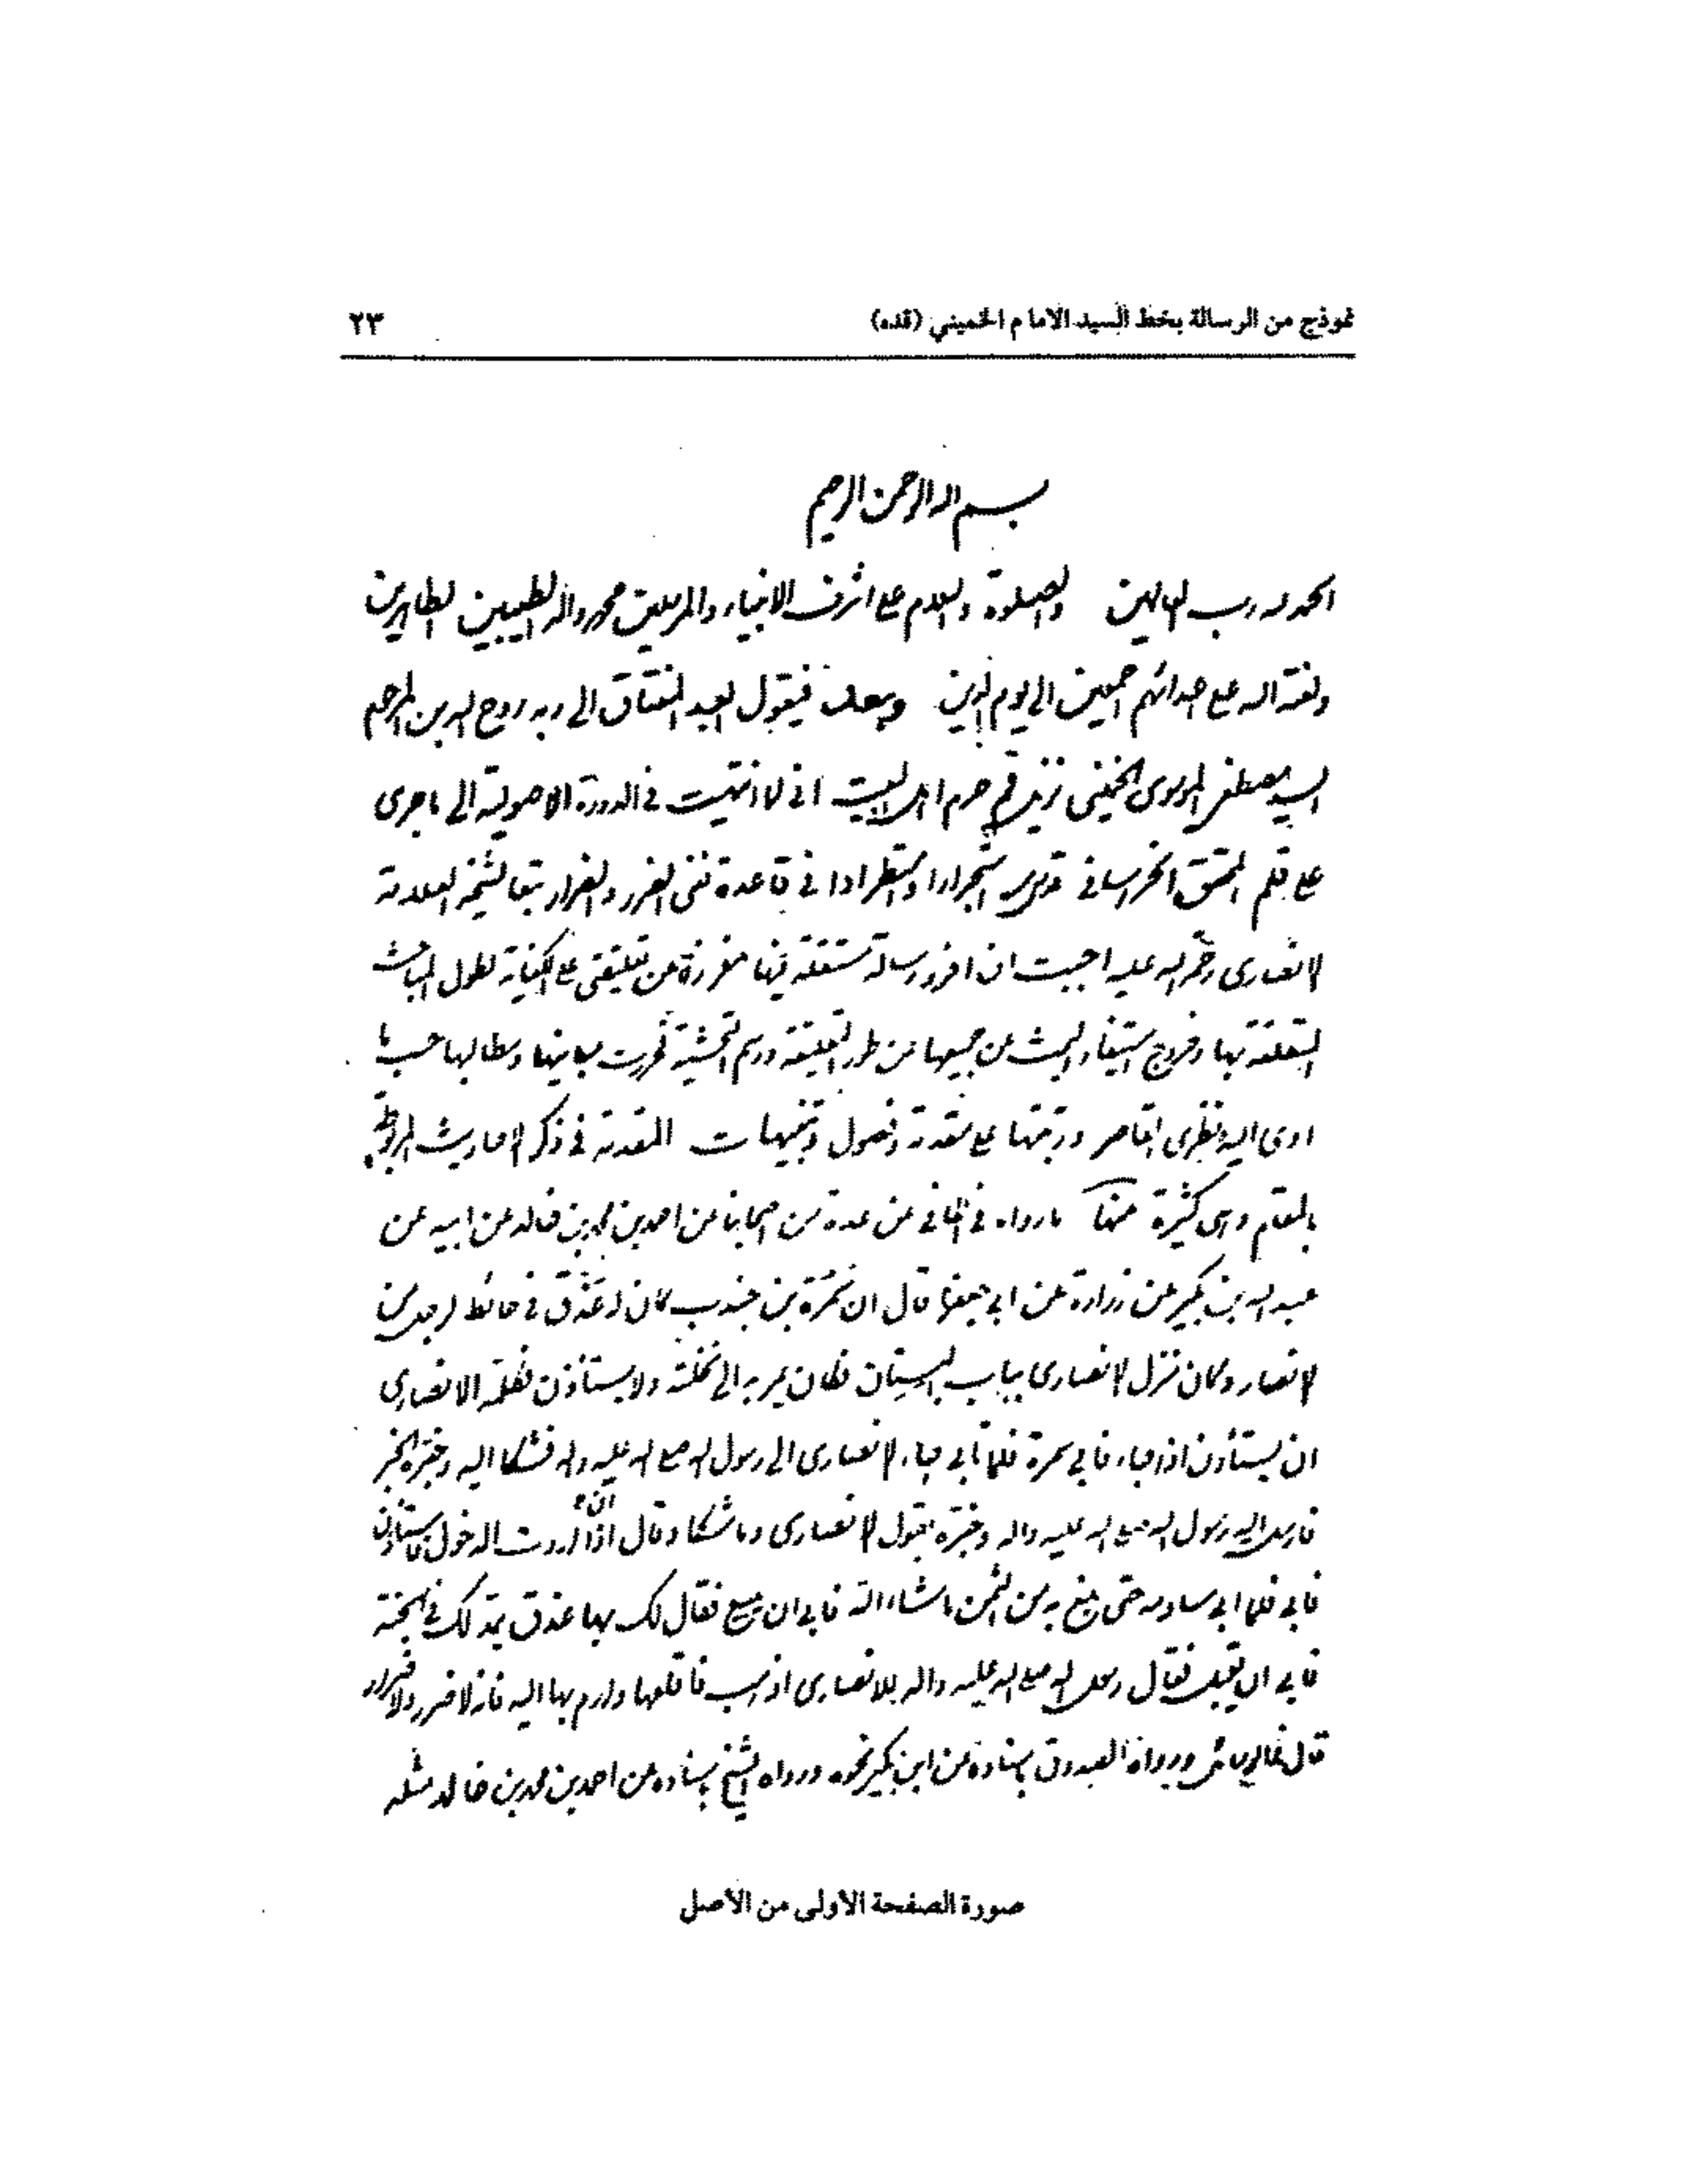 نموذج من الرسالة بخط السيد الامام الخميني (قده) ٢٣
بسم الله الرحمن الرحيم
الحمد لله رب العالمين والصلوة والسلام على اشرف الانبياء والمرسلين محمد واله الطيبين الطاهرين
ولعنة الله على اعدائهم اجمعين الى يوم الدين وبعد فيقول العبد المفتاق الى ربه روح الله بن المرحوم
السيد مصطفى الموسوى الخمينى نزيل قم حرم اهل البيت انى لما انتهيت فى الدورة الاصولية الى ما جرى
على قلم المحقق الخراسانى قدس سره استجرارا واستطرادا فى قاعدة نفى الضرر والضرار تبعا لشيخه العلامة
الانصارى رحمة الله عليه احببت ان افرد رسالة مستقلة فيها مفرزة عن تعليقتى على الكفاية لطول المباحث
المتعلقة بها وخروج استيفاء البحث عن جميعها عن طور التعليقة ورسم التحشية فحررت مبانيها ومطالبها حسب ما
ادى اليه نظرى القاصر ورتبتها على مقدمة وفصول وتنبيهات المقدمة فى ذكر الاحاديث المربوطة
بالمقام وهى كثيرة منها ما رواه فى الكافى عن عدة من اصحابنا عن احمد بن محمد بن خالد عن ابيه عن
عبد الله بن بكير عن زرارة عن ابى جعفر قال ان سمرة بن جندب كان له عذق فى حائط لرجل من
الانصار وكان منزل الانصارى بباب البستان فكان يمر به الى نخلته ولا يستأذن فكلمه الانصارى
ان يستأذن اذا جاء فابى سمرة فلما تأبى جاء الانصارى الى رسول الله صلى الله عليه واله فشكا اليه وخبره الخبر
فارسل اليه رسول الله صلى الله عليه واله وخبره بقول الانصارى وما شكا وقال ان اذا اردت الدخول فاستأذن
فابى فلما ابى ساومه حتى بلغ به من الثمن ما شاء الله فابى ان يبيع فقال لك بها عذق يمد لك فى الجنة
فابى ان يقبل فقال رسول الله صلى الله عليه واله للانصارى اذهب فاقلعها وارم بها اليه فانه لا ضرر ولا ضرار
قال فى الوسائل ورواه الصدوق باسناده عن ابن بكير نحوه ورواه الشيخ باسناده عن احمد بن محمد بن خالد مثله
صورة الصفحة الاولى من الاصل